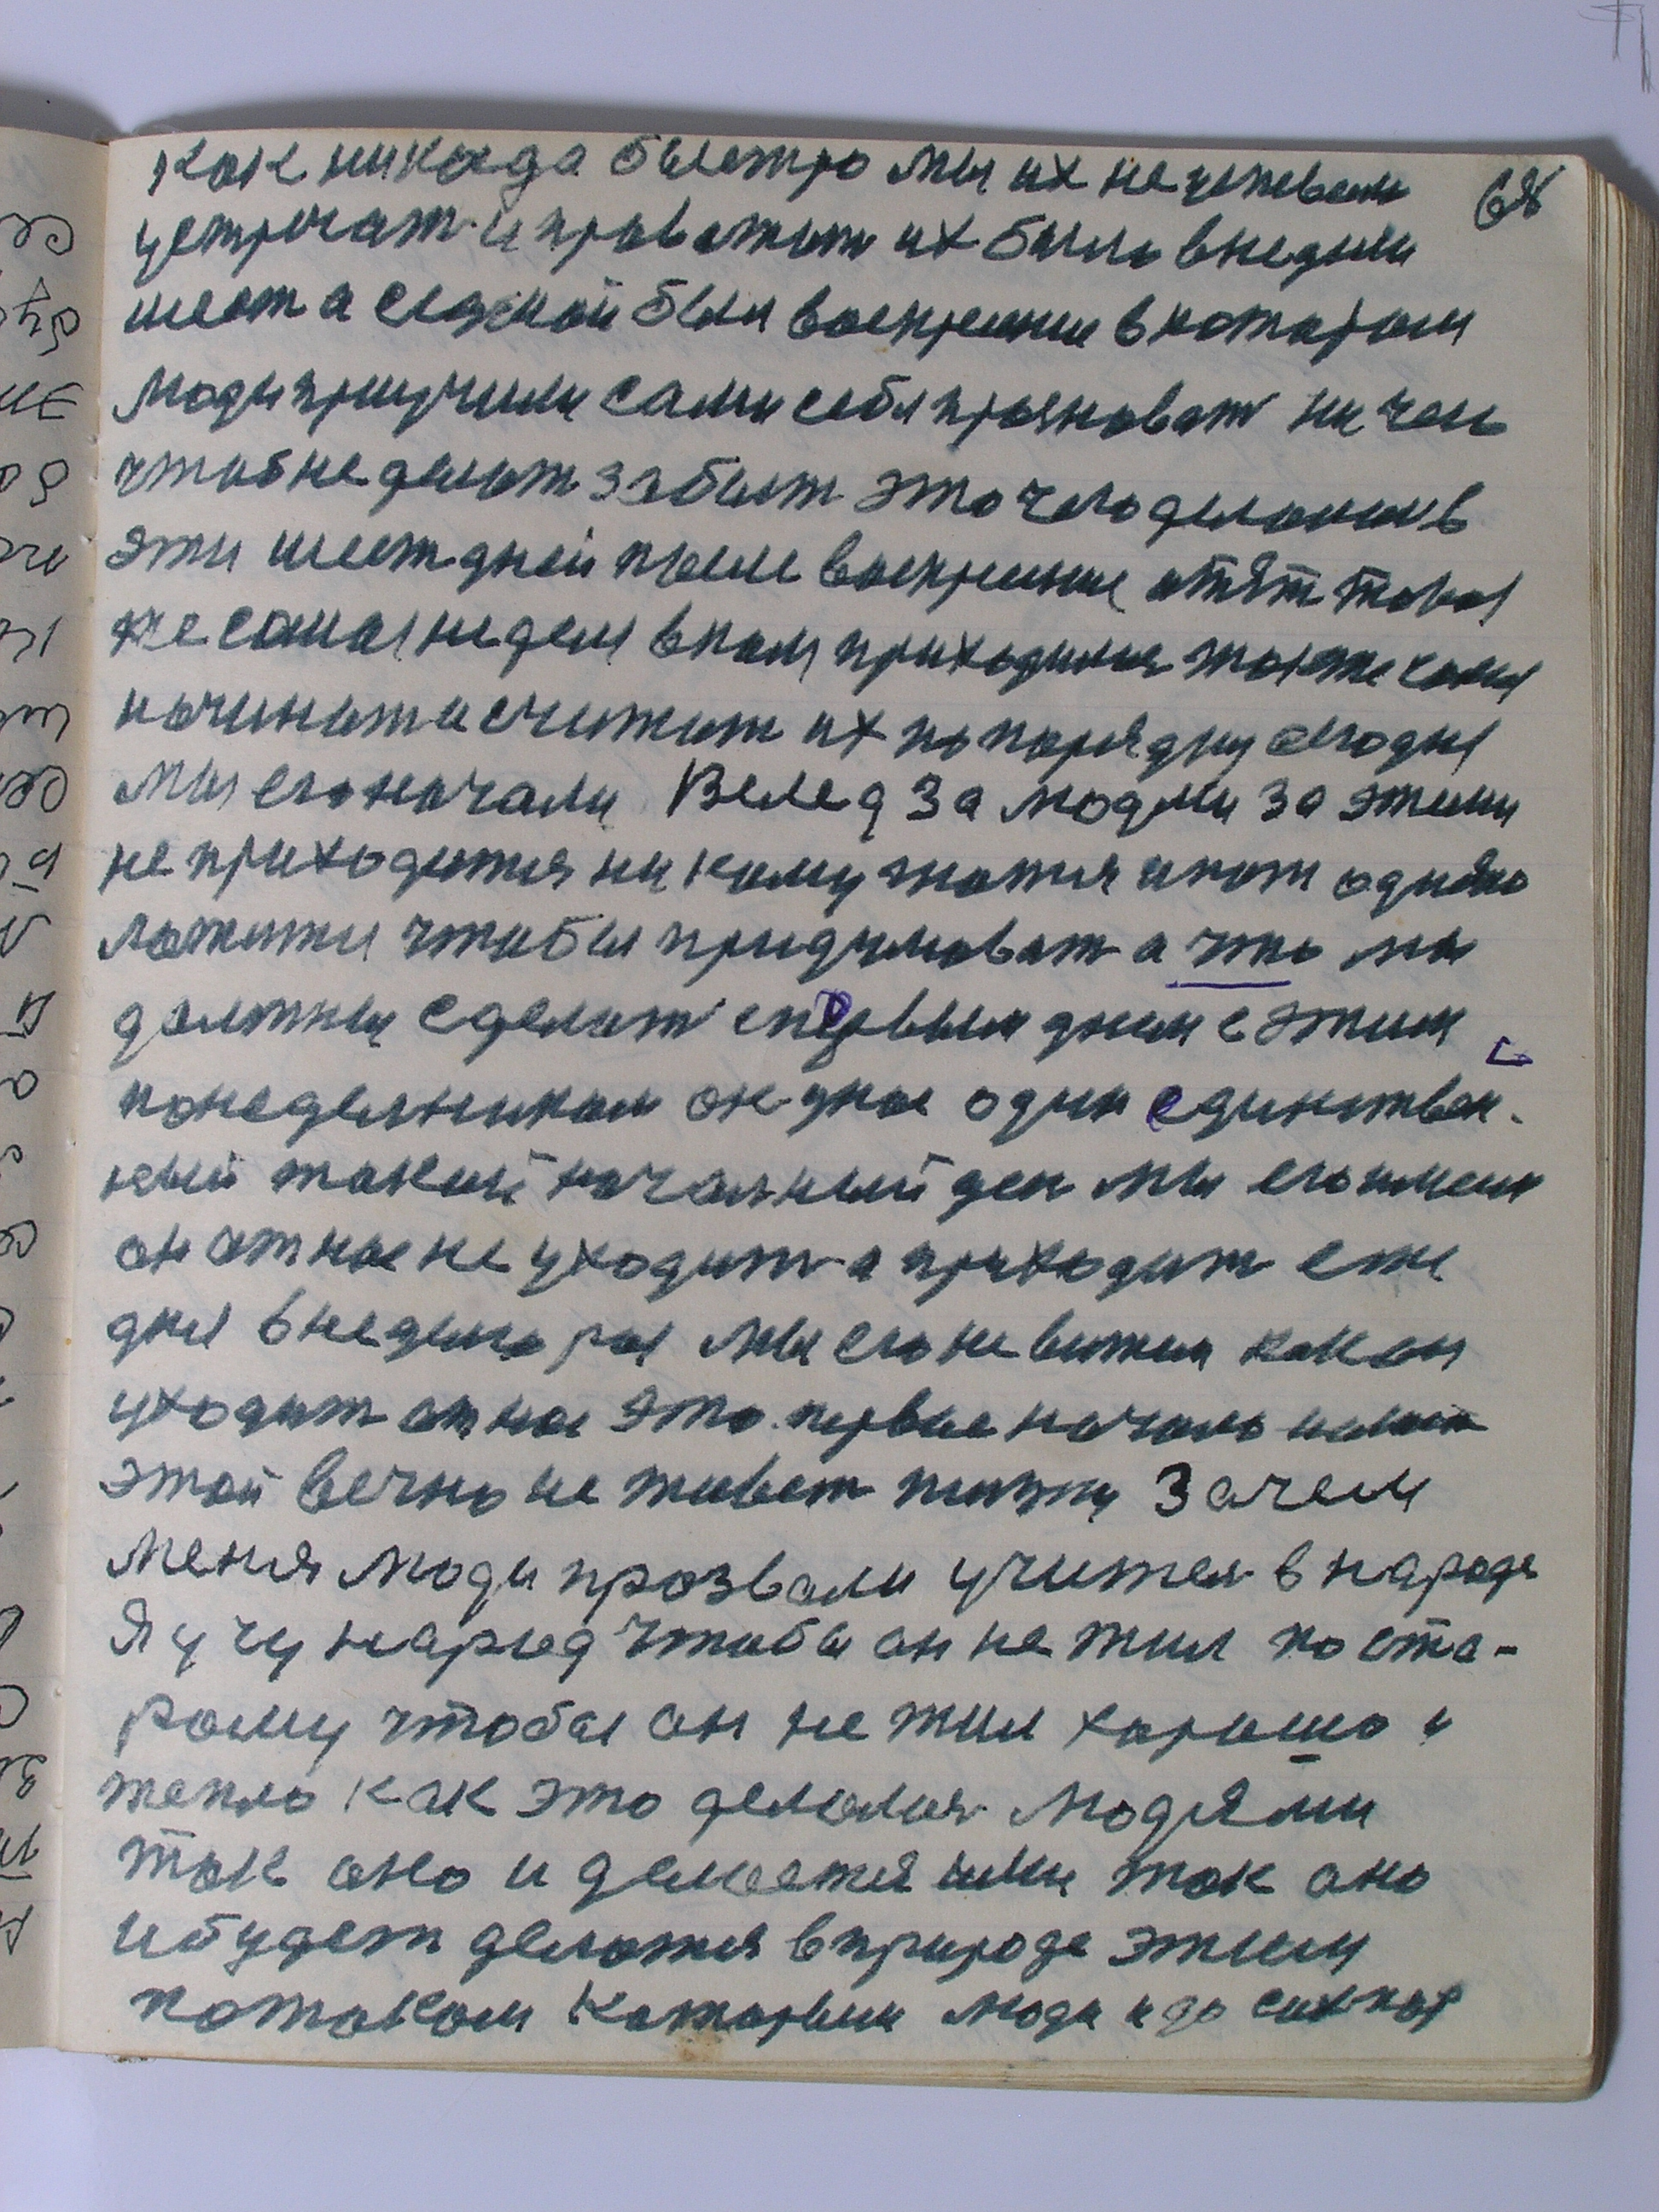 как никогда быстро мы их не успевали 68
устричат и проважати их было внедели
шест а седмой был воскрешние в котором
люди приучили сами себя празноват ни чем
чтоб не делат забыт это чего делали в
эти шест дней после воскрешние опят такая
же самая неделя в нам приходилося тоже
начинат и считат их по порядку сегодня
мы его начали Вслед за людми за этими
не приходится ни кому гнатся
ложитси чтобы придумоват а что мы
должны сделат сперьвым днем с этим
понеделником он у нас один единствен-
ный такий началный ден мы его имеем
он от нас не уходит а приходит
дня внеделю раз мы его не вижим как он
уходит от нас это первое начало
этой вечно не живет жизни Зачем
меня люди прозвали учител в народе
Я учу народ чтобы он не жил по ста-
рому чтобы он не жил хорошо и
тепло как это делалося людями
так оно и делается ими так оно
и будет делатся в природе этим
потоком которым люди и до сих пор